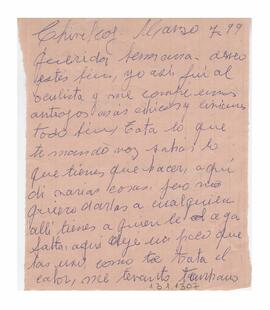 Chivilcoy Marzo 7 99
Querida hermana deseo
estés bien, yo así fui al
oculista y me compre unos
anteojos más chicos y
todo bien, Tata lo que
te mando vos sabrá lo
que tienes que hacer, aquí
di varias cosas, pero no
quiero darlas a cualquiera
allí tienes a quien le haga
falta, aquí deje un poco que
tal vos, como te trata el
calor, me levanto temprano
131307